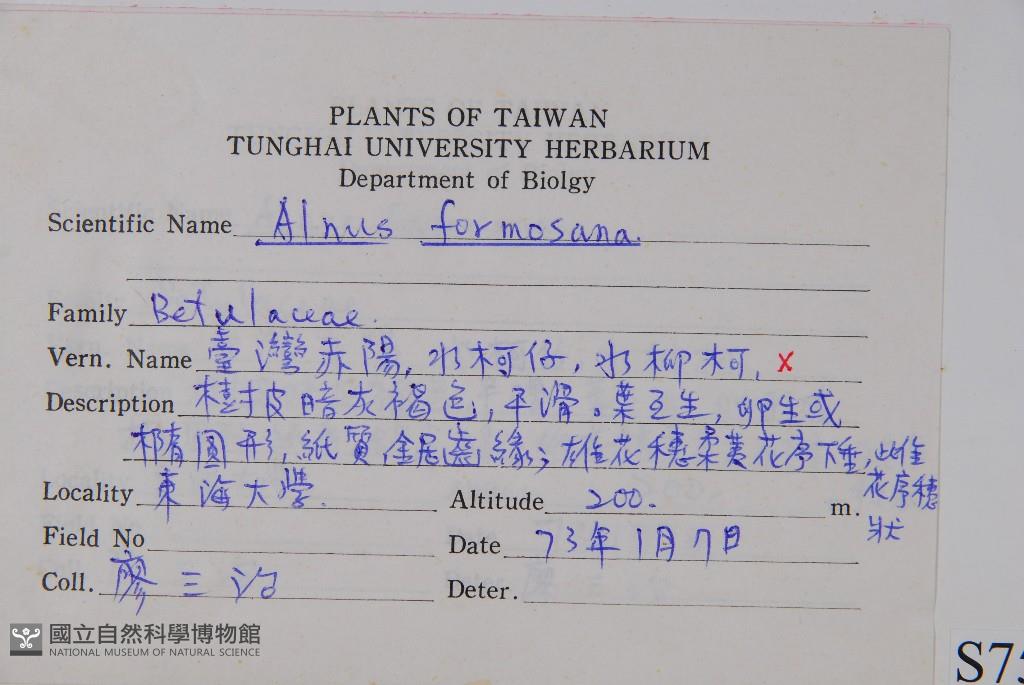 PLANTS OF TAIWAN
TUNGHAI UNIVERSITY HERBARIUM
Department of Biolgy
Scientific Name Alnus formosana.
Family Betulaceae.
Vern. Name 臺灣赤陽, 水柯仔, 水柳柯. x
Description 樹披暗灰褐色, 平滑。葉互生, 卵生或
橢圓形, 紙質鋸齒緣; 雄花穗柔荑花序下垂, 雌
花序穗
狀
Locality 東海大學.
Altitude 200. m.
Field No
Date 73年1月7日
Coll. 廖三治
Deter.
國立自然科學博物館
NATIONAL MUSEUM OF NATURAL SCIENCE
S75